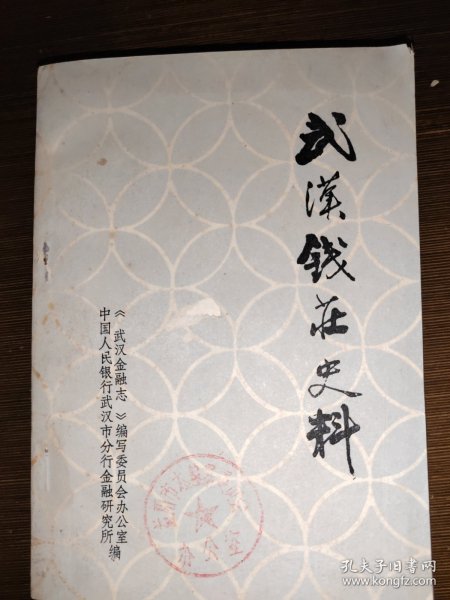 武漢钱莊史料
《武汉金融志》编写委员会办公室
中国人民银行武汉市分行金融研究所 编
办公室
孔夫子旧书网
www.kongfz.com